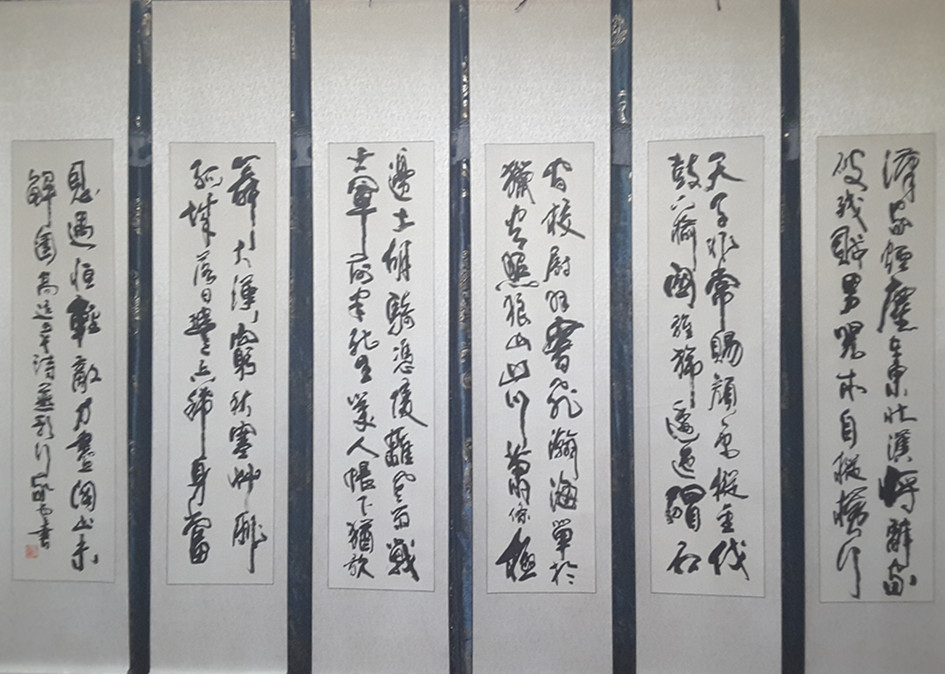 漢家煙塵在東北漢將辭家
破残賊男児本自縱橫行
天子非常賜顏色摐金伐
鼓下榆関旌旆逶迤碣石
間校尉羽書飛瀚海單於
獵火照狼山山川蕭條極
邊土胡騎憑陵雜風雨戰
士軍前半死生美人帳下猶歌
舞大漠窮秋塞艸腓
孤城落日鬥兵稀身當
恩遇恒輕敵力盡關山未
解圍高適詩燕歌行書